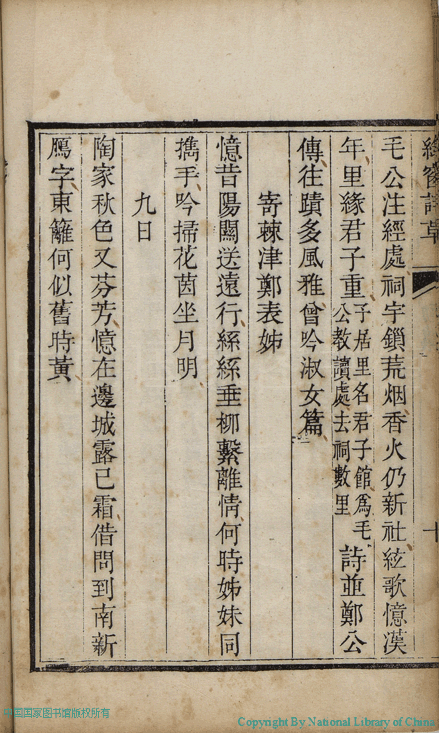 綠窗詩草
毛公注經處祠宇鎖荒烟香火仍新社絃歌憶漢
年里緣君子重子居里名君子館爲毛公教讀處去祠數里詩並鄭公
傳往蹟多風雅曾吟淑女篇
寄棘津鄭表姊
憶昔陽關送遠行絲絲垂柳繫離情何時姊妹同
攜手吟掃花茵坐月明
九日
陶家秋色又芬芳憶在邊城露已霜借問到南新
鴈字東籬何似舊時黃
中国国家图书馆版权所有
Copyright By National Library of China